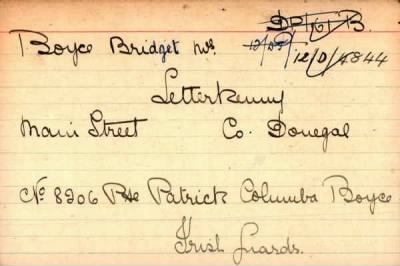 Boyce Bridget Mrs.
12/D/4844
Letterkenny
Main Street Co. Donegal
No 8206 Pte Patrick Columba Boyce
Irish Guards.